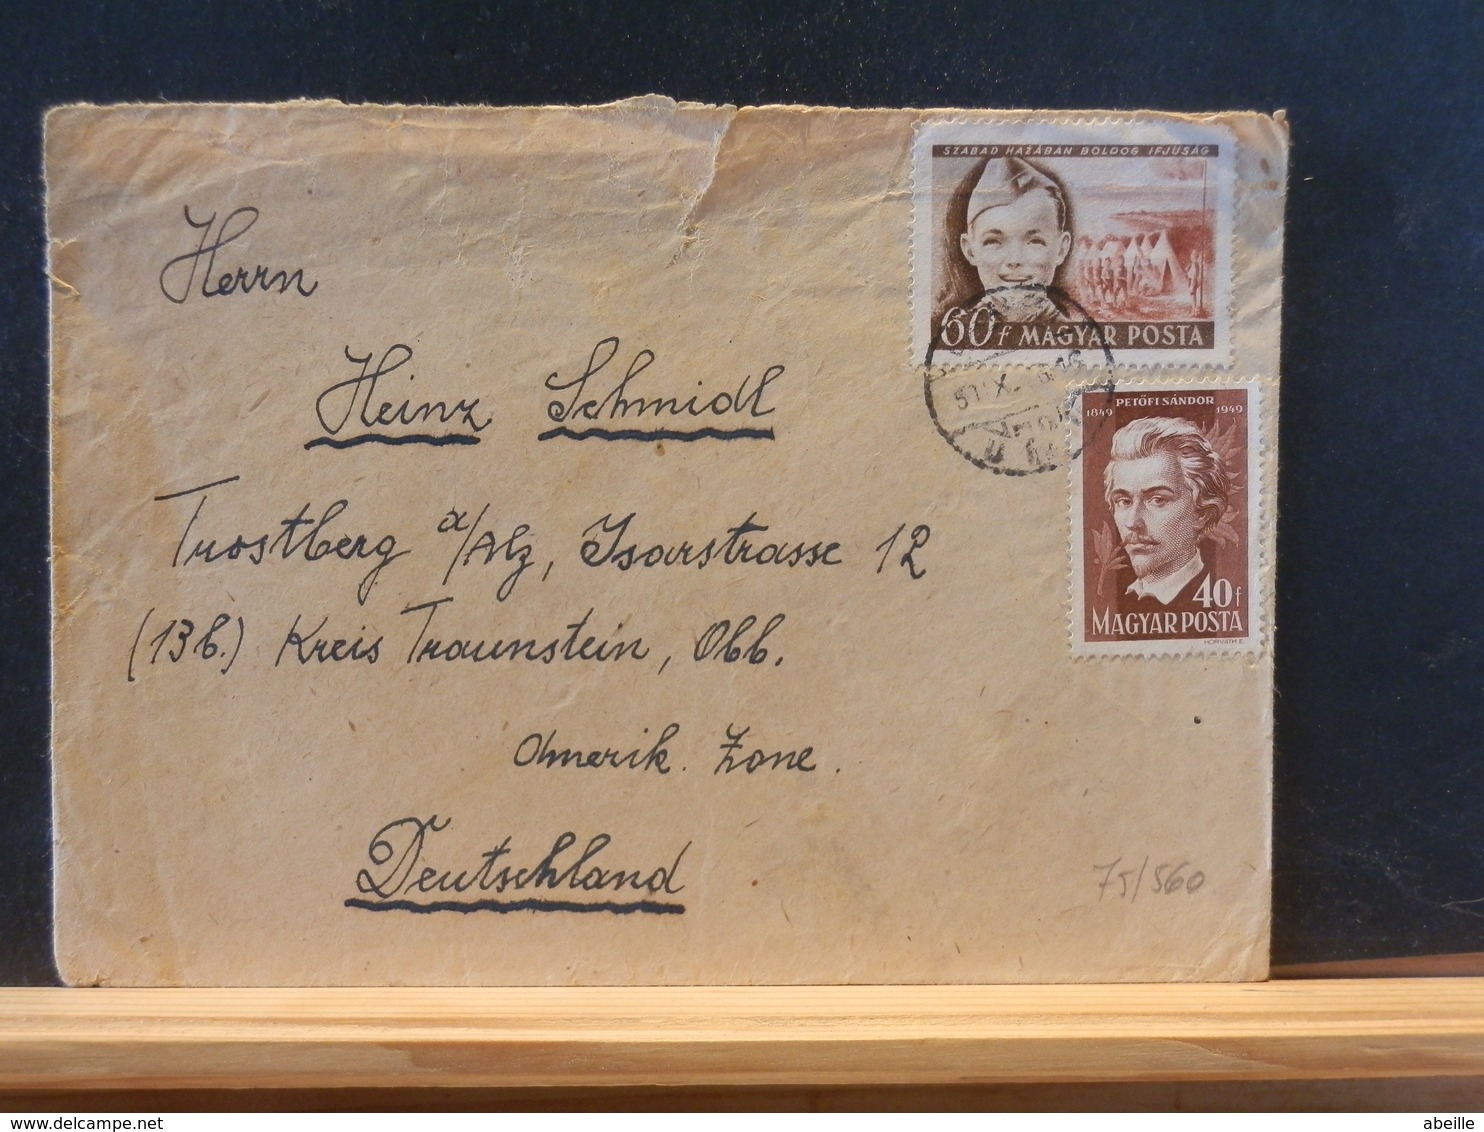 SZABAD HAZÁBAN BOLDOG IFJUSÁG
60f MAGYAR POSTA
PETŐFI SÁNDOR
1849 1949
40f
MAGYAR POSTA
HORVÁTH E.
Herrn
Heinz Schmidl
Trostberg a/Alz, Isarstrasse 12
(13b.) Kreis Traunstein, Obb.
Amerik. Zone.
Deutschland
75/560
abeille